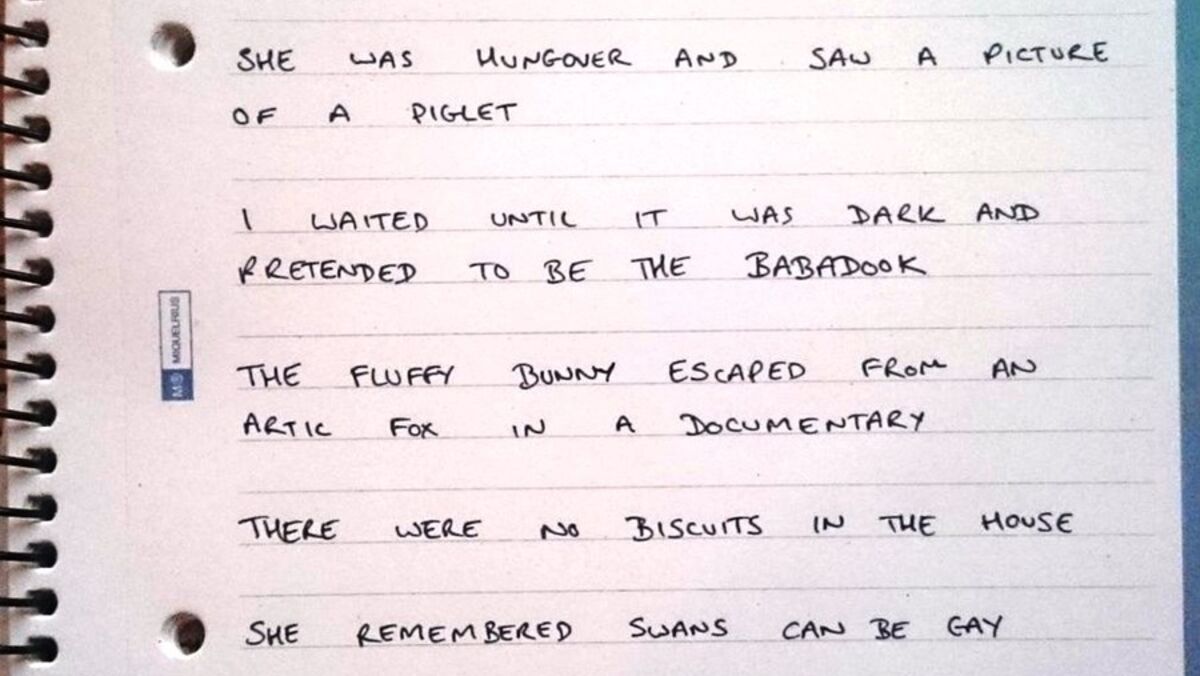 SHE WAS HUNGOVER AND SAW A PICTURE
OF A PIGLET
I WAITED UNTIL IT WAS DARK AND
PRETENDED TO BE THE BABADOOK
MIQUELRIUS
THE FLUFFY BUNNY ESCAPED FROM AN
ARTIC FOX IN A DOCUMENTARY
THERE WERE NO BISCUITS IN THE HOUSE
SHE REMEMBERED SWANS CAN BE GAY